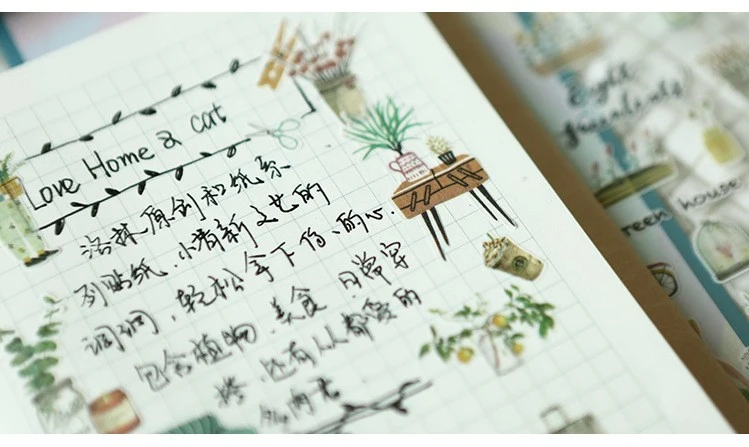 Love Home & cat
洛林原创和纸系
列贴纸.小清新文艺的
调调,轻松拿下你的心.
包含植物.美食.日常穿
搭.还有人人都爱的
多肉君
Eight
succulents
green house